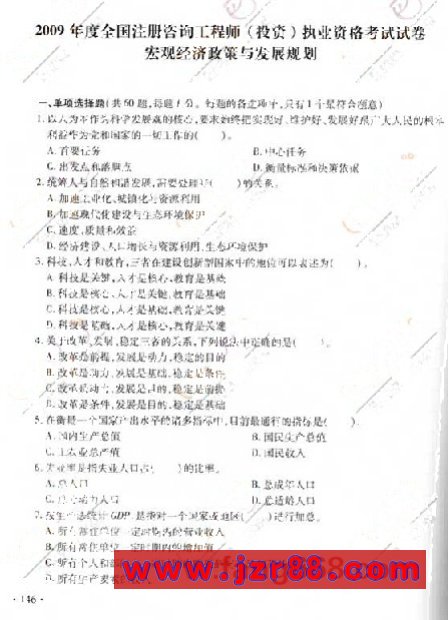 2009 年度全国注册咨询工程师（投资）执业资格考试试卷
宏观经济政策与发展规划
一、单项选择题（共 60 题，每题 1 分。每题的备选项中，只有 1 个最符合题意）
1. 以人为本作为科学发展观的核心，要求始终把实现好、维护好、发展好最广大人民的根本
利益作为党和国家的一切工作的（　　）。
A. 首要任务
B. 中心任务
C. 出发点和落脚点
D. 衡量标准和决策依据
2. 统筹人与自然和谐发展，需要处理好（　　）的关系。
A. 加速工业化、城镇化与资源利用
B. 加速现代化建设与生态环境保护
C. 速度、质量和效益
D. 经济建设、人口增长与资源利用、生态环境保护
3. 科技、人才和教育，三者在建设创新型国家中的地位可以表述为（　　）。
A. 科技是关键，人才是核心，教育是基础
B. 科技是核心，人才是关键，教育是基础
C. 科技是核心，人才是基础，教育是关键
D. 科技是基础，人才是核心，教育是关键
4. 关于改革、发展、稳定三者的关系，下列说法中正确的是（　　）。
A. 改革是前提，发展是动力，稳定是目的
B. 改革是动力，发展是基础，稳定是条件
C. 改革是动力，发展是目的，稳定是前提
D. 改革是条件，发展是目的，稳定是基础
5. 在衡量一个国家产出水平的诸多指标中，目前最通行的指标是（　　）。
A. 国内生产总值
B. 国民生产总值
C. 工农业总产值
D. 国民收入
6. 失业率是指失业人口占（　　）的比率。
A. 总人口
B. 总成年人口
D. 总适龄人口
GDP 是指对一个国家或地区（　　）进行加总。
A. 所有常住单位一定时期内的营业收入
B. 所有常住单位一定时期内的增加值
www.jzr88.com
· 146 ·